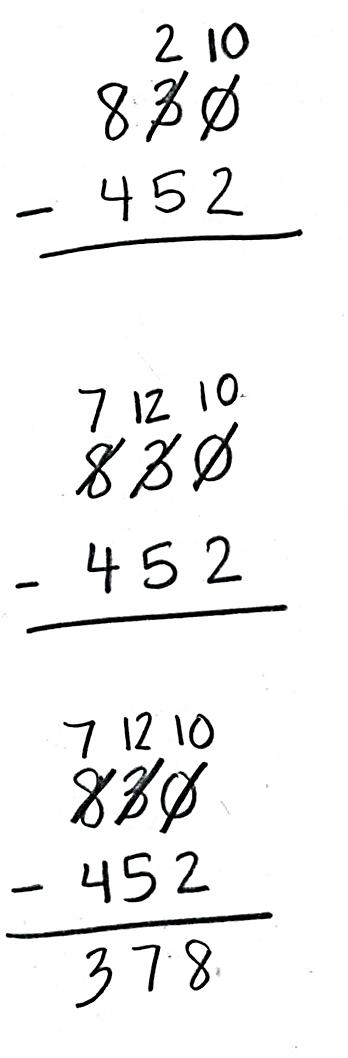 2 10
830
- 452
7 12 10
830
- 452
7 12 10
830
- 452
378